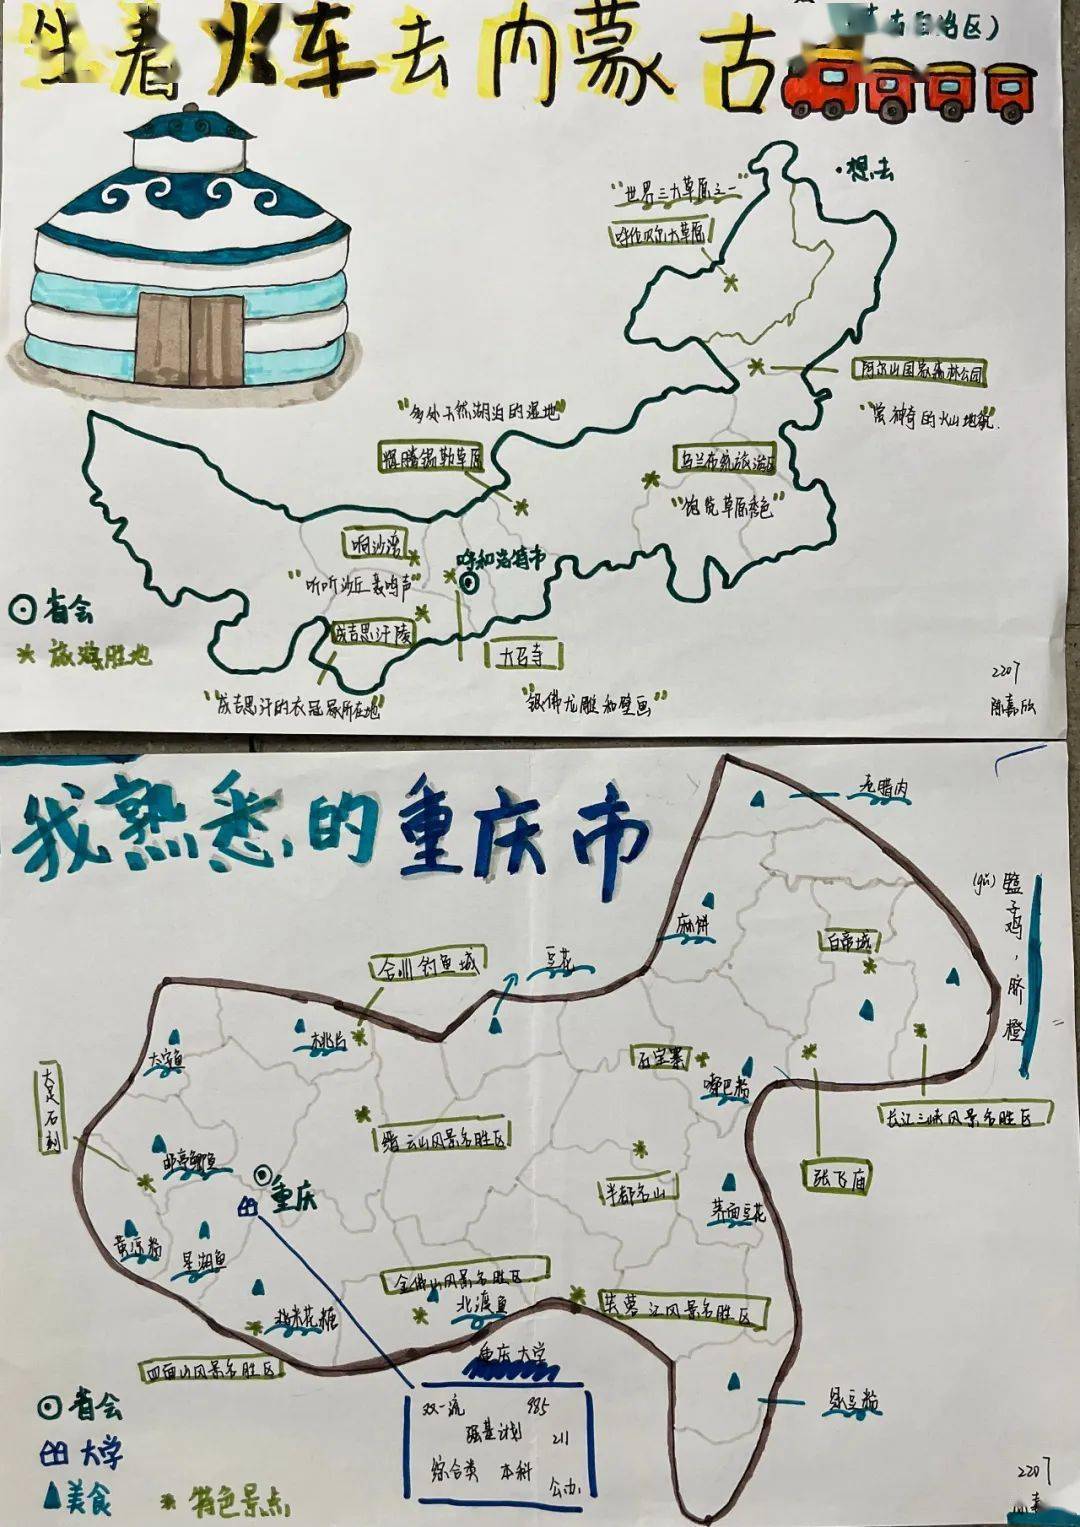 坐着火车去内蒙古
古自治区)
·想去
"世界三大草原之一"
呼伦贝尔大草原
阿尔山国家森林公园
"赏神奇的火山地貌.
"多处天然湖泊的湿地"
辉腾锡勒草原
乌兰布统旅游区
"饱览草原秀色"
响沙湾
呼和浩特市
"听听沙丘轰鸣声"
省会
成吉思汗陵
大召寺
旅游胜地
"成吉思汗的衣冠冢所在地"
"银佛龙雕和壁画"
2207
陈嘉欣
我熟悉的重庆市
老腊肉
(gǔ)盬子鸡,脐橙
麻饼
白帝城
合川钓鱼城
豆花
大安鱼
桃片
石宝寨
嗦巴粉
大足石刻
缙云山风景名胜区
长江三峡风景名胜区
邮亭鲫鱼
重庆
丰都名山
张飞庙
荞面豆花
黄凉粉
星湖鱼
金佛山风景名胜区
北渡鱼
芙蓉江风景名胜区
米花糖
四面山风景名胜区
重庆大学
双一流 985
强基计划 211
综合类 本科
公办
绿豆粉
省会
大学
美食
特色景点
2207